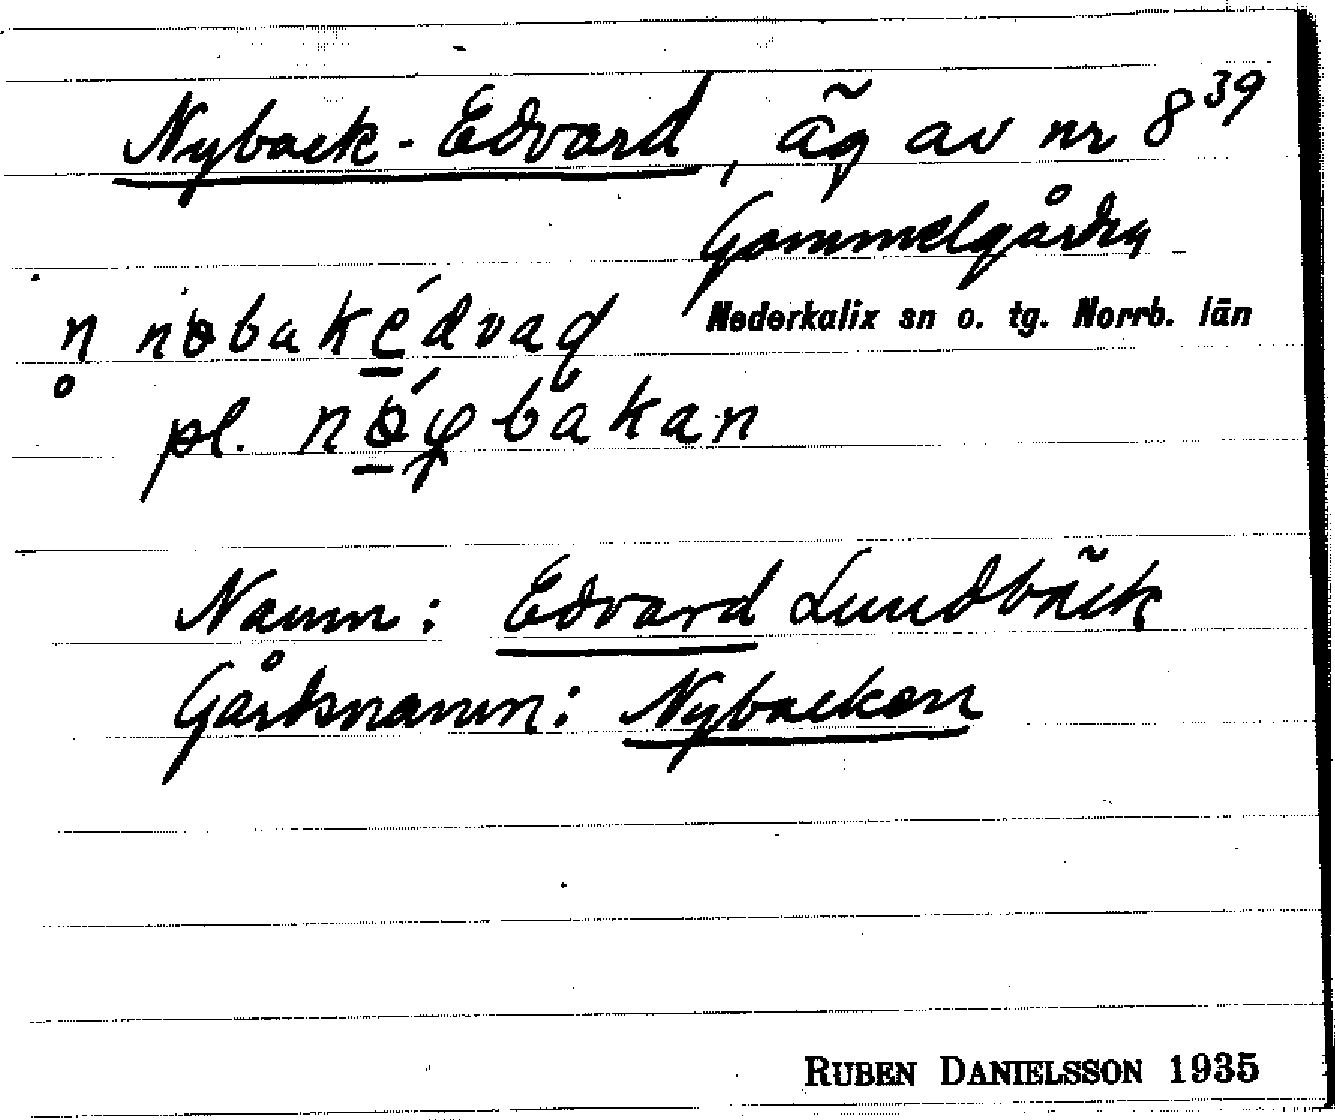 Nyback-Edvard, äg av nr 8³⁹
Gammelgården
Nederkalix sn o. tg. Norrb. län
n̥ nɵbakédvaɖ
pl. nɵ́ybakan
Namn: Edvard Lundbäck
Gårdsnamn: Nybacken
RUBEN DANIELSSON 1935